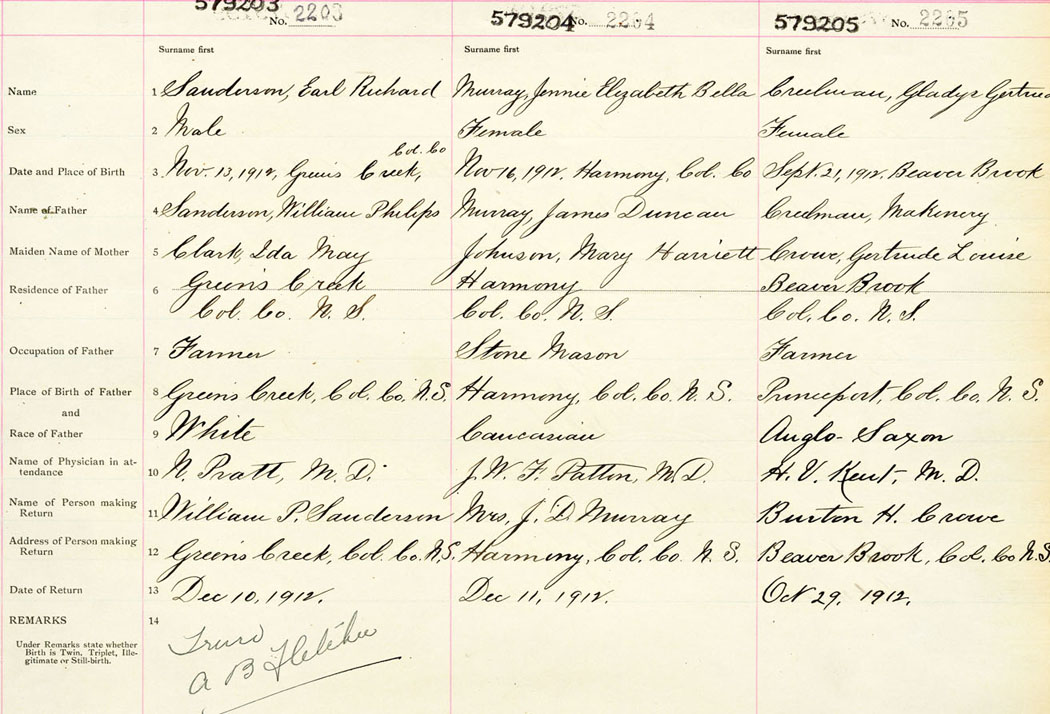 579203 No. 2203 579204 No. 2204 579205 No. 2205
Surname first Surname first Surname first
Name 1 Sanderson, Earl Richard Murray, Jennie Elizabeth Bella Creelman, Gladys Gertrude
Sex 2 Male Female Female
Col. Co
Date and Place of Birth 3 Nov. 13, 1912, Greens Creek, Nov 16, 1912. Harmony, Col. Co Sept. 21, 1912. Beaver Brook
Name of Father 4 Sanderson, William Philips Murray, James Duncan Creelman,
Maiden Name of Mother 5 Clark, Ida May Johnson, Mary Harriett Crowe, Gertrude Louise
Residence of Father 6 Greens Creek Harmony Beaver Brook
Col. Co. N. S. Col. Co. N. S. Col. Co. N. S.
Occupation of Father 7 Farmer Stone Mason Farmer
Place of Birth of Father 8 Greens Creek, Col. Co. N.S. Harmony, Col. Co. N. S. Princeport, Col. Co. N. S.
and
Race of Father 9 White Caucasian Anglo-Saxon
Name of Physician in at-
tendance 10 N. Pratt, M. D. J. W. F. Patton, M. D. H. V. Kent, M. D.
Name of Person making
Return 11 William P. Sanderson Mrs, J. D Murray Burton H. Crowe
Address of Person making
Return 12 Greens Creek, Col. Co. N.S. Harmony, Col. Co. N. S. Beaver Brook, Col. Co N.S.
Date of Return 13 Dec 10, 1912. Dec 11, 1912. Oct 29, 1912.
REMARKS 14
Under Remarks state whether
Birth is Twin, Triplet, Ille-
gitimate or Still-birth.
Truro
A B Fletcher